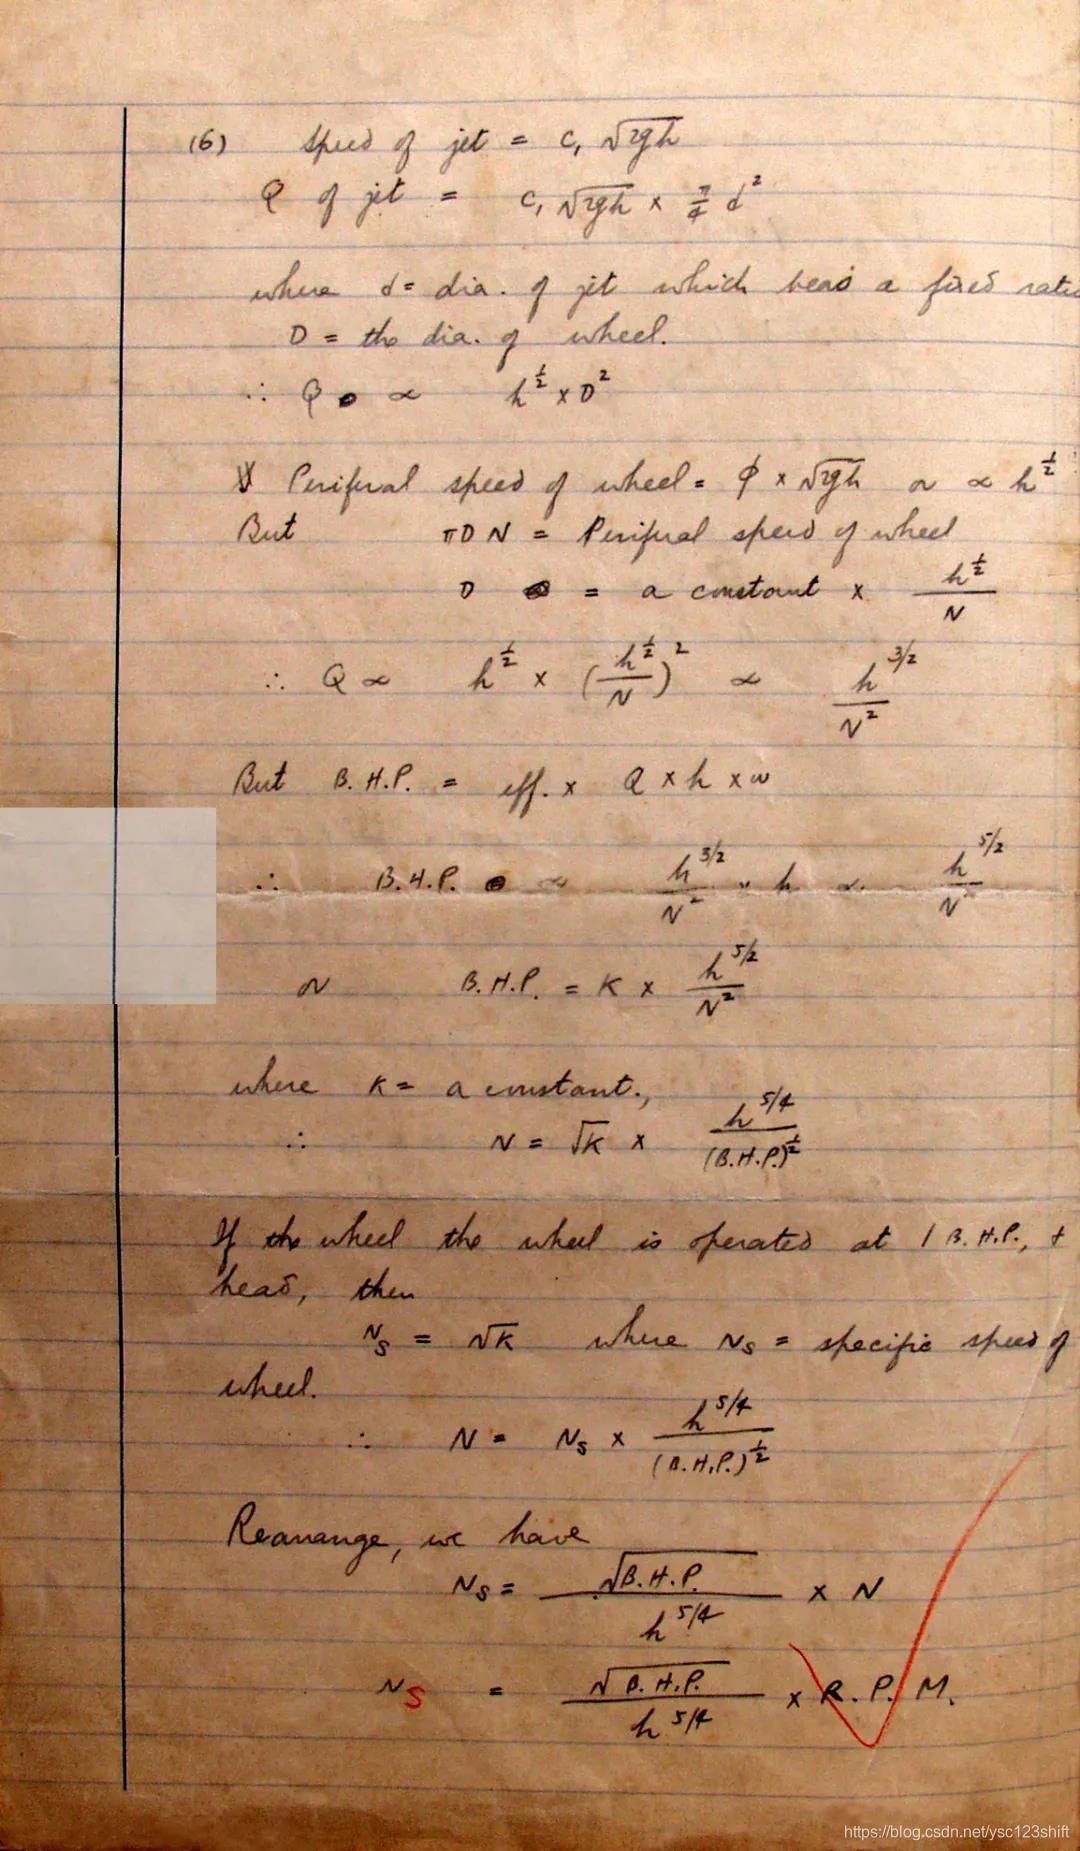 (6) Speed of jet = C₁ √2gh
Q of jet = C₁ √2gh × π/4 d²
where d = dia. of jet which bears a fixed ratio
D = the dia. of wheel.
∴ Q ∝ h^½ × D²
Periferal speed of wheel = φ × √2gh or ∝ h^½
But πDN = Periferal speed of wheel
D = a constant × h^½/N
∴ Q ∝ h^½ × (h^½/N)² ∝ h^3/2/N²
But B.H.P. = eff. × Q × h × w
∴ B.H.P. ∝ h^3/2/N² × h ∝ h^5/2/N²
or B.H.P. = K × h^5/2/N²
where K = a constant.,
∴ N = √K × h^5/4/(B.H.P.)^½
If the wheel the wheel is operated at 1 B.H.P., +
head, then
Ns = √K where Ns = specific speed of
wheel.
∴ N = Ns × h^5/4/(B.H.P.)^½
Rearange, we have
Ns = √B.H.P./h^5/4 × N
Ns = √B.H.P./h^5/4 × R.P.M.
https://blog.csdn.net/ysc123shift